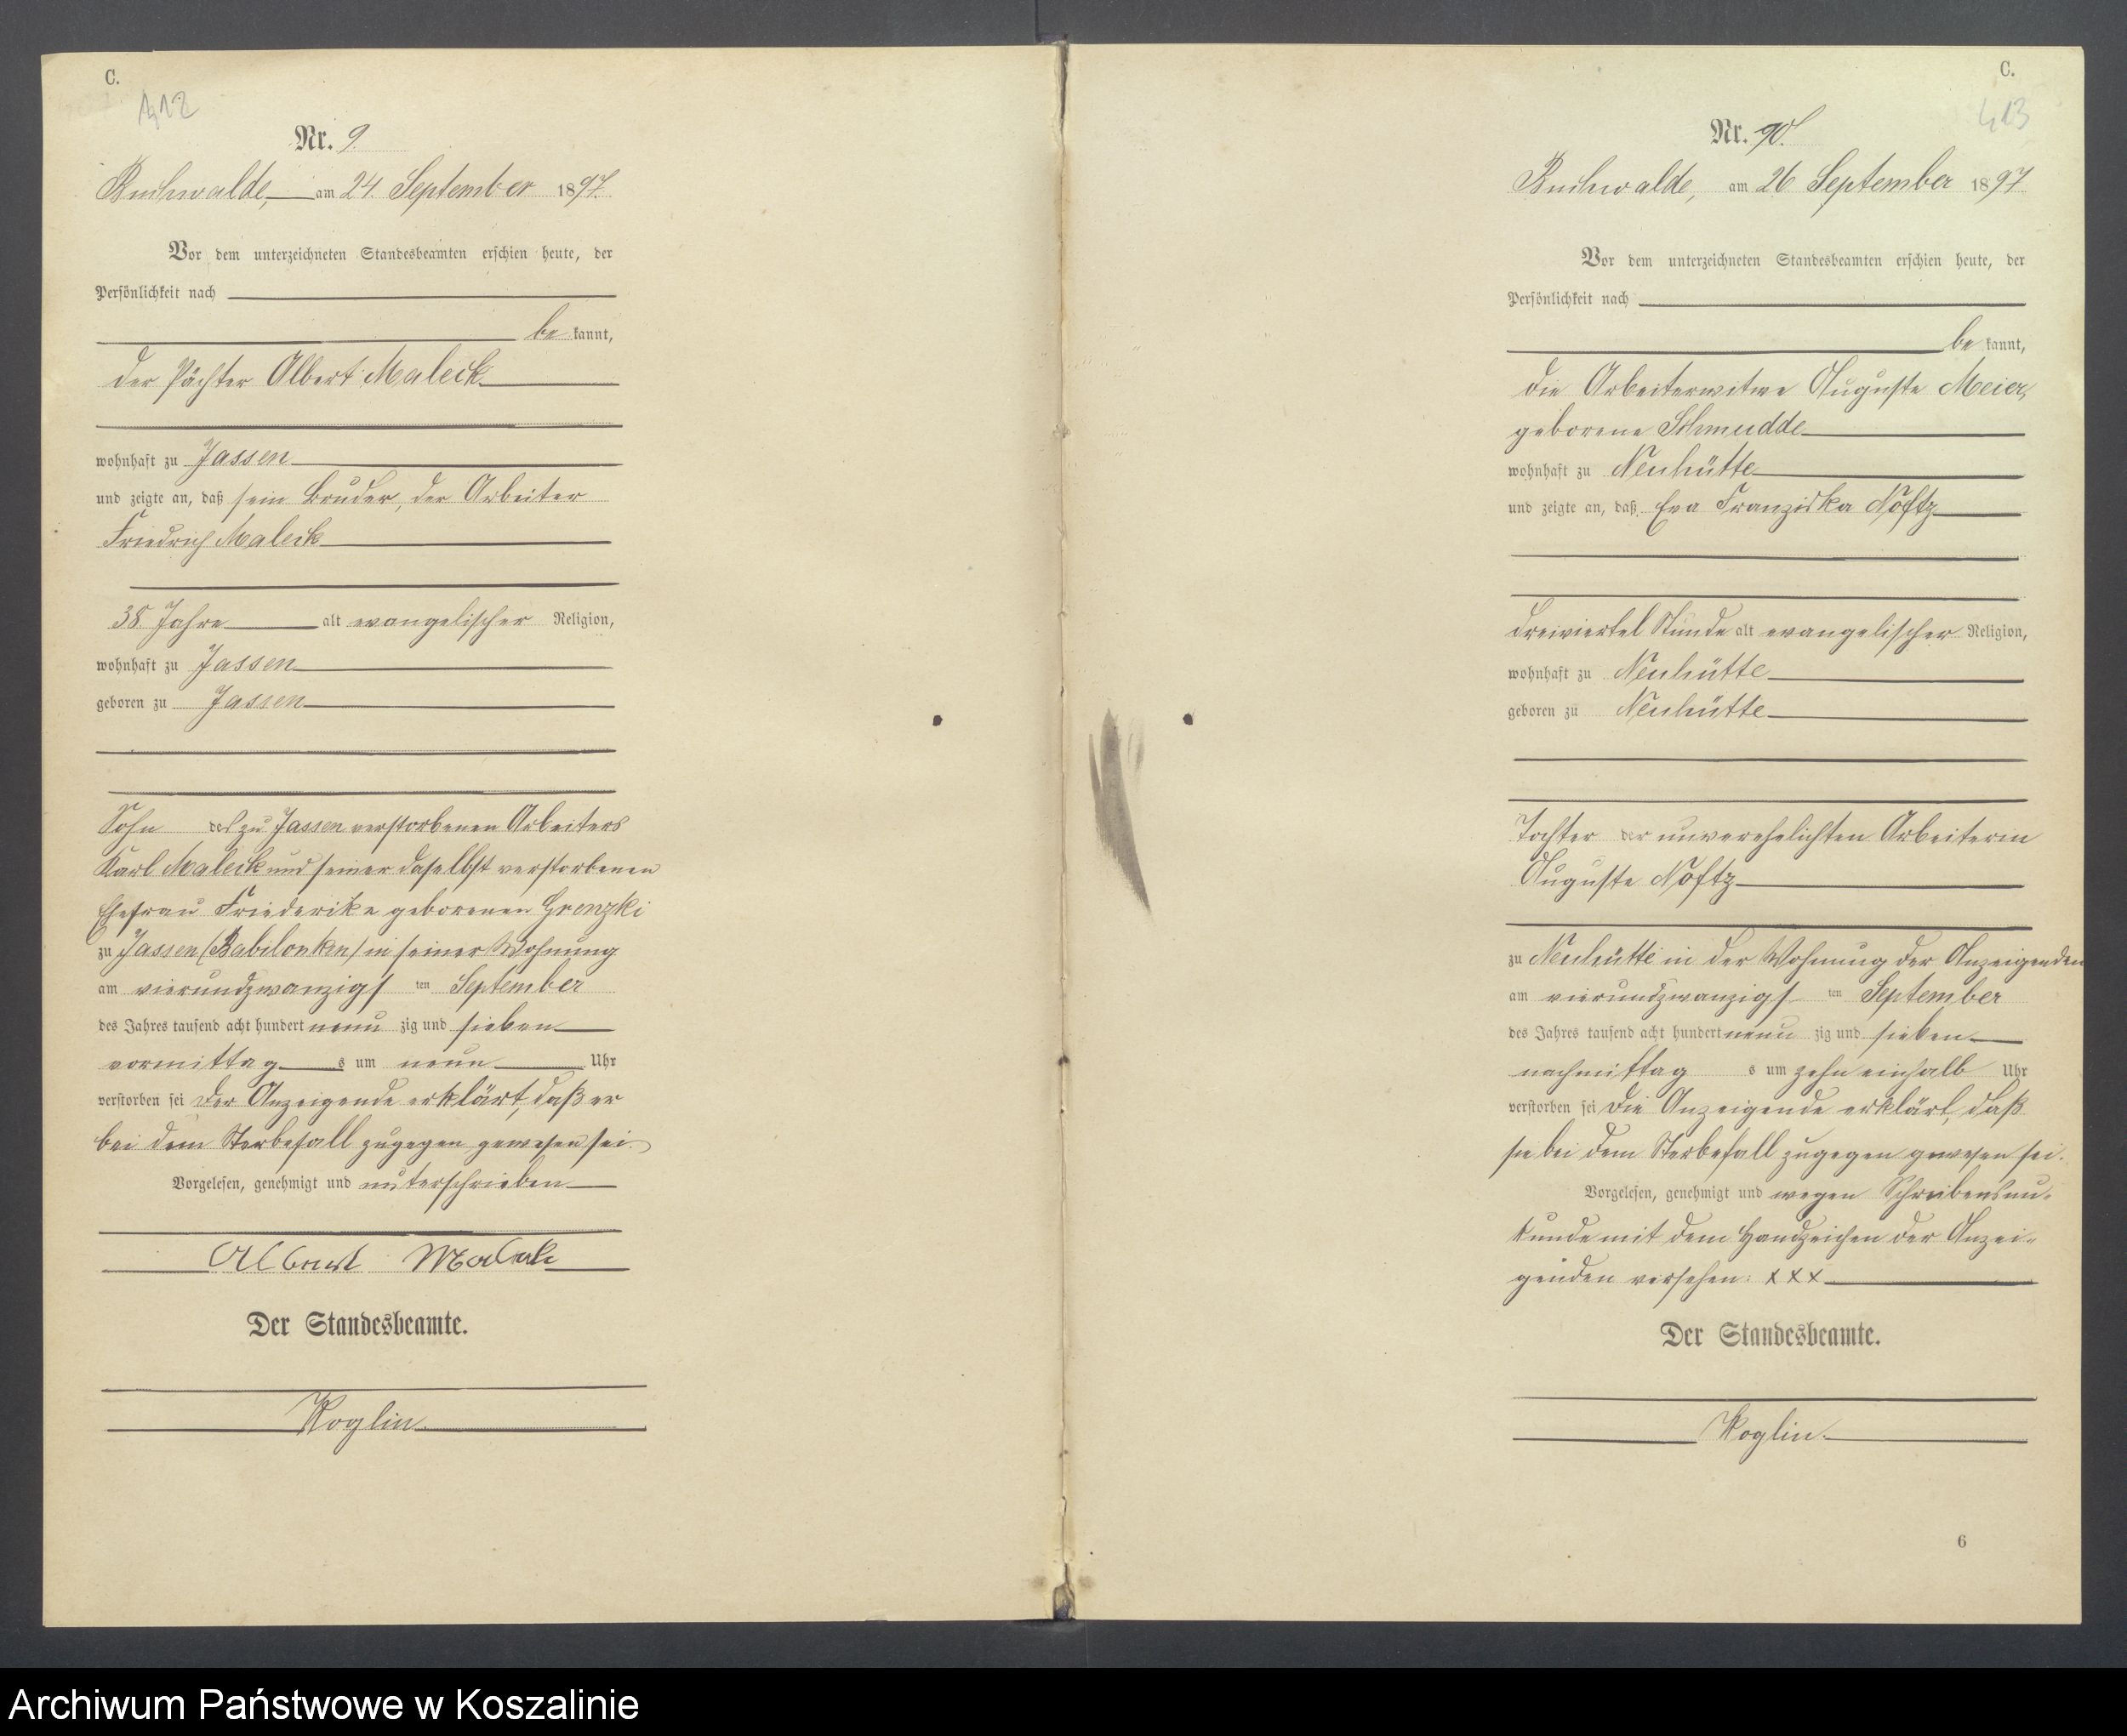 C.
412
Nr. 9.
Buchwalde, am 24. September 1897.
Vor dem unterzeichneten Standesbeamten erschien heute, der
Persönlichkeit nach
be kannt,
der Pächter Albert Maleck
wohnhaft zu Jassen
und zeigte an, daß sein Bruder, der Arbeiter
Friedrich Maleck
38 Jahre alt evangelischer Religion,
wohnhaft zu Jassen
geboren zu Jassen
Sohn des zu Jassen verstorbenen Arbeiters
Karl Maleck und seiner daselbst verstorbenen
Ehefrau Friederike geborenen Grenzki
zu Jassen (Babilonken) in seiner Wohnung
am vierundzwanzigs ten September
des Jahres tausend acht hundert neun zig und sieben
vormittag s um neun Uhr
verstorben sei Der Anzeigende erklärt, daß er
bei dem Sterbefall zugegen gewesen sei.
Vorgelesen, genehmigt und unterschrieben
Albert Maleck
Der Standesbeamte.
Koglin.
C.
413
Nr. 90.
Buchwalde, am 26 September 1897.
Vor dem unterzeichneten Standesbeamten erschien heute, der
Persönlichkeit nach
be kannt,
die Arbeiterwitwe Auguste Meier,
geborene Schmudde
wohnhaft zu Neuhütte
und zeigte an, daß Eva Franziska Nöftz
dreiviertel Stunde alt evangelischer Religion,
wohnhaft zu Neuhütte
geboren zu Neuhütte
Tochter der unverehelichten Arbeiterin
Auguste Nöftz
zu Neuhütte in der Wohnung der Anzeigenden
am vierundzwanzigs ten September
des Jahres tausend acht hundert neun zig und sieben
nachmittag s um zehn einhalb Uhr
verstorben sei Die Anzeigende erklärt, daß
sie bei dem Sterbefall zugegen gewesen sei.
Vorgelesen, genehmigt und wegen Schreibensun-
kunde mit dem Handzeichen der Anzei-
genden versehen: XXX
Der Standesbeamte.
Koglin.
6
Archiwum Państwowe w Koszalinie